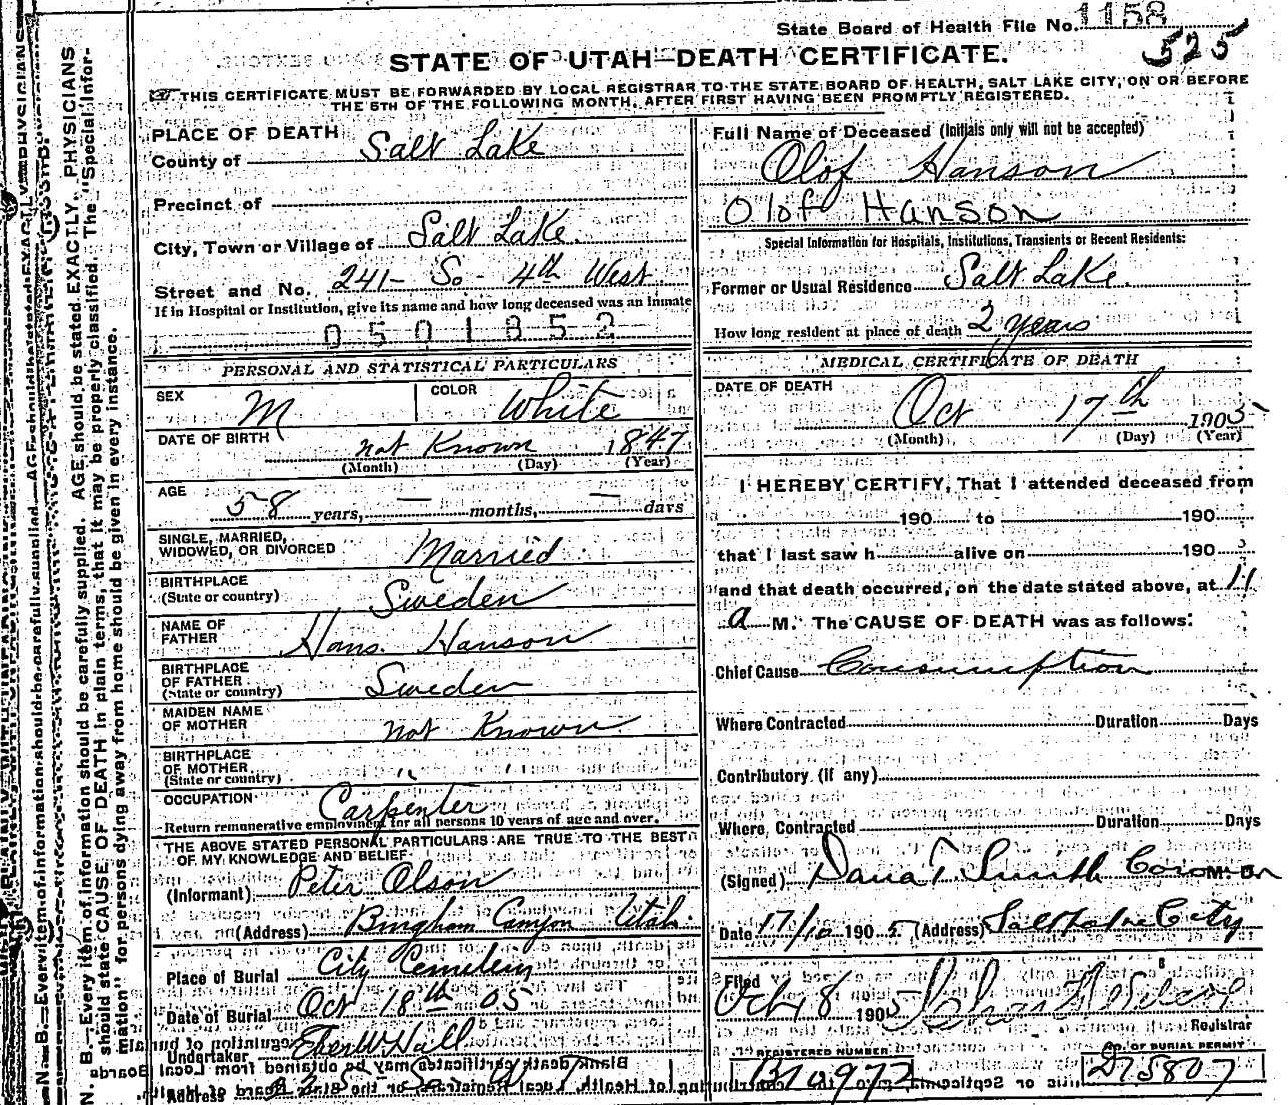 State Board of Health File No. 1158
525
STATE OF UTAH—DEATH CERTIFICATE.
THIS CERTIFICATE MUST BE FORWARDED BY LOCAL REGISTRAR TO THE STATE BOARD OF HEALTH, SALT LAKE CITY, ON OR BEFORE
THE 5TH OF THE FOLLOWING MONTH, AFTER FIRST HAVING BEEN PROMPTLY REGISTERED.
PLACE OF DEATH
County of Salt Lake
Precinct of
City, Town or Village of Salt Lake.
Street and No. 241- So- 4th West
If in Hospital or Institution, give its name and how long deceased was an Inmate
0501852
PERSONAL AND STATISTICAL PARTICULARS
SEX M COLOR White
DATE OF BIRTH not Known 1847
(Month) (Day) (Year)
AGE
58 years, — months, — days
SINGLE, MARRIED,
WIDOWED, OR DIVORCED Married
BIRTHPLACE
(State or country) Sweden
NAME OF
FATHER Hans. Hanson
BIRTHPLACE
OF FATHER
(State or country) Sweden
MAIDEN NAME
OF MOTHER not Known
BIRTHPLACE
OF MOTHER
(State or country) " "
OCCUPATION Carpenter
Return remunerative employment for all persons 10 years of age and over.
THE ABOVE STATED PERSONAL PARTICULARS ARE TRUE TO THE BEST
OF MY KNOWLEDGE AND BELIEF.
(Informant) Peter Olson
(Address) Bingham Canyon Utah.
Place of Burial City Cemetery
Date of Burial Oct 18th 05
Undertaker Eber W Hall
Address
Full Name of Deceased (Initials only will not be accepted)
Olof Hanson
Olof Hanson
Special Information for Hospitals, Institutions, Transients or Recent Residents:
Former or Usual Residence Salt Lake.
How long resident at place of death 2 years
MEDICAL CERTIFICATE OF DEATH
DATE OF DEATH
Oct 17th 1905
(Month) (Day) (Year)
I HEREBY CERTIFY, That I attended deceased from
190 to 190
that I last saw h alive on 190
and that death occurred, on the date stated above, at 11
a M. The CAUSE OF DEATH was as follows:
Chief Cause Consumption
Where Contracted Duration Days
Contributory (if any)
Where Contracted Duration Days
(Signed) Dana T. Smith Coroner M. D.
Date 17/10 1905. (Address) Salt Lake City
Filed
Oct 18 1905
Registrar
REGISTERED NUMBER NO. OF BURIAL PERMIT
B10972 D75807
N. B.—Every item of information should be carefully supplied. AGE should be stated EXACTLY. PHYSICIANS
should state CAUSE OF DEATH in plain terms, that it may be properly classified. The "Special Infor-
mation" for persons dying away from home should be given in every instance.